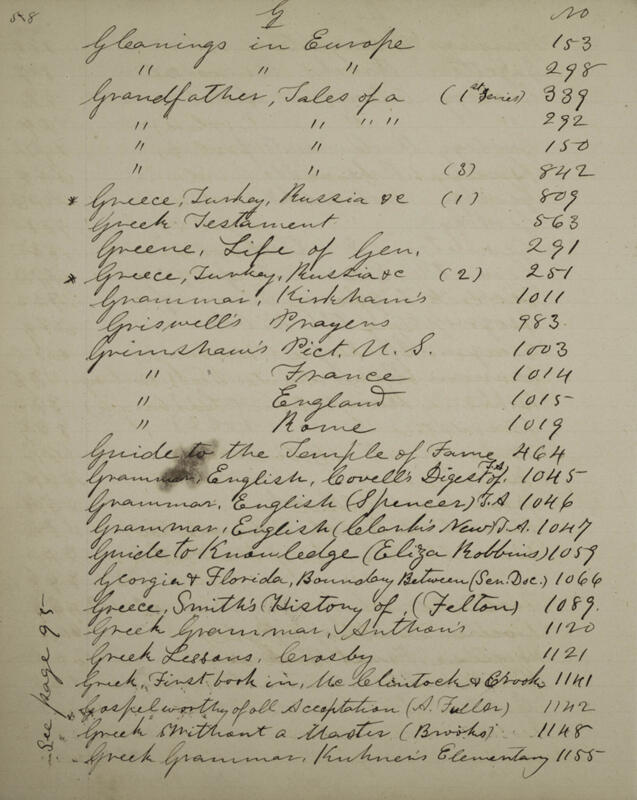 58 G No
Gleanings in Europe 153
" " " 298
Grandfather, Tales of a (1st Series) 339
" " " " 292
" " 150
" " (3) 842
* Greece, Turkey, Russia &c (1) 809
Greek Testament 563
Greene, Life of Gen. 291
* Greece, Turkey, Russia &c (2) 251
Grammar, Kirkham's 1011
Griswell's Prayers 983
Grimshaw's Pict. U. S. 1003
" France 1014
" England 1015
" Rome 1019
Guide to the Temple of Fame 464
Grammar, English, Covell's Digest of. T.A 1045
Grammar, English (Spencer) T.A 1046
Grammar, English (Clark's New) T.A. 1047
Guide to Knowledge (Eliza Robbins) 1059
Georgia & Florida, Boundary Between (Sen. Doc.) 1066
Greece, Smith's History of, (Felton) 1089.
Greek Grammar, Anthon's 1120
Greek Lessons, Crosby 1121
Greek, First book in, Mc Clintock & Crooks 1141
Gospel worthy of all Acceptation (A. Fuller) 1142
Greek Without a Master (Brooks) 1148
Greek Grammar, Kuhner's Elementary 1155
See page 95